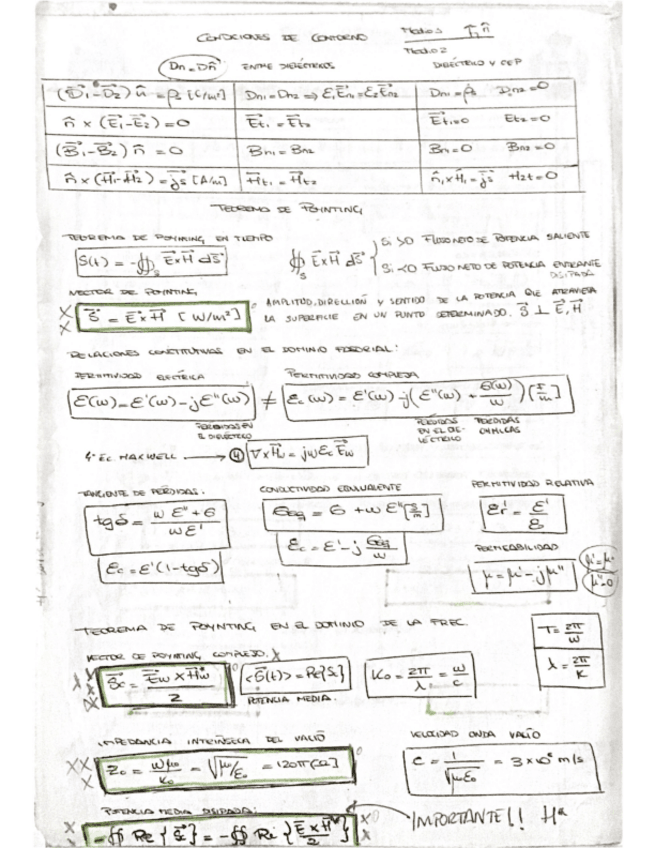 CONDICIONES DE CONTORNO
Medio 1
Medio 2
n̂
Dn = Dn̂
ENTRE DIELÉCTRICOS
DIELÉCTRICO Y CEP
(D⃗1-D⃗2) n̂ = ρs [C/m²]
Dn1 = Dn2 ⇒ ε1E⃗n1 = ε2E⃗n2
Dn1 = ρs Dn2 = 0
n̂ × (E⃗1-E⃗2) = 0
E⃗t1 = E⃗t2
E⃗t1=0 Et2 = 0
(B⃗1-B⃗2) n̂ = 0
Bn1 = Bn2
Bn1 = 0 Bn2 = 0
n̂ × (H⃗1-H⃗2) = j⃗s [A/m]
H⃗t1 = H⃗t2
n̂1 × H⃗1 = j⃗s H2t = 0
TEOREMA DE POYNTING
TEOREMA DE POYNTING EN TIEMPO
S(t) = -∯s E⃗×H⃗ dS⃗
∯s E⃗×H⃗ dS⃗
Si >0 FLUJO NETO DE POTENCIA SALIENTE
Si <0 FLUJO NETO DE POTENCIA ENTRANTE
DISIPADA
VECTOR DE POYNTING
S⃗ = E⃗×H⃗ [W/m²]
AMPLITUD, DIRECCIÓN Y SENTIDO DE LA POTENCIA QUE ATRAVIESA
LA SUPERFICIE EN UN PUNTO DETERMINADO. S⃗ ⊥ E⃗, H⃗
RELACIONES CONSTITUTIVAS EN EL DOMINIO FASORIAL:
PERMITIVIDAD ELÉCTRICA
PERMITIVIDAD COMPLEJA
ε(w) = ε'(w) - jε''(w) ≠ εc(w) = ε'(w) - j(ε''(w) + σ(w)/w) [F/m]
PÉRDIDAS EN
EL DIELÉCTRICO
PÉRDIDAS
EN EL DIE-
LÉCTRICO
PÉRDIDAS
OHMICAS
4ª EC. MAXWELL → ④ ∇×H⃗w = jwεcE⃗w
TANGENTE DE PÉRDIDAS.
CONDUCTIVIDAD EQUIVALENTE
PERMITIVIDAD RELATIVA
tgδ = (wε''+σ)/(wε')
σeq = σ + wε'' [S/m]
εr' = ε'/ε
εc = ε'(1-tgδ)
εc = ε' - j σeq/w
PERMEABILIDAD
μ = μ' - jμ''
μ''=0
TEOREMA DE POYNTING EN EL DOMINIO DE LA FREC.
T = 2π/w
λ = 2π/K
VECTOR DE POYNTING COMPLEJO.
S⃗c = (E⃗w × H⃗w*)/2
<S⃗(t)> = Re{Sc}
POTENCIA MEDIA.
K0 = 2π/λ = w/c
IMPEDANCIA INTRÍNSECA DEL VACÍO
VELOCIDAD ONDA VACÍO
Z0 = wμ0/K0 = √(μ0/ε0) = 120π [Ω]
POTENCIA MEDIA DISIPADA:
-∯ Re{S⃗c} = -∯ Re{(E⃗×H⃗*)/2}
IMPORTANTE!! H*